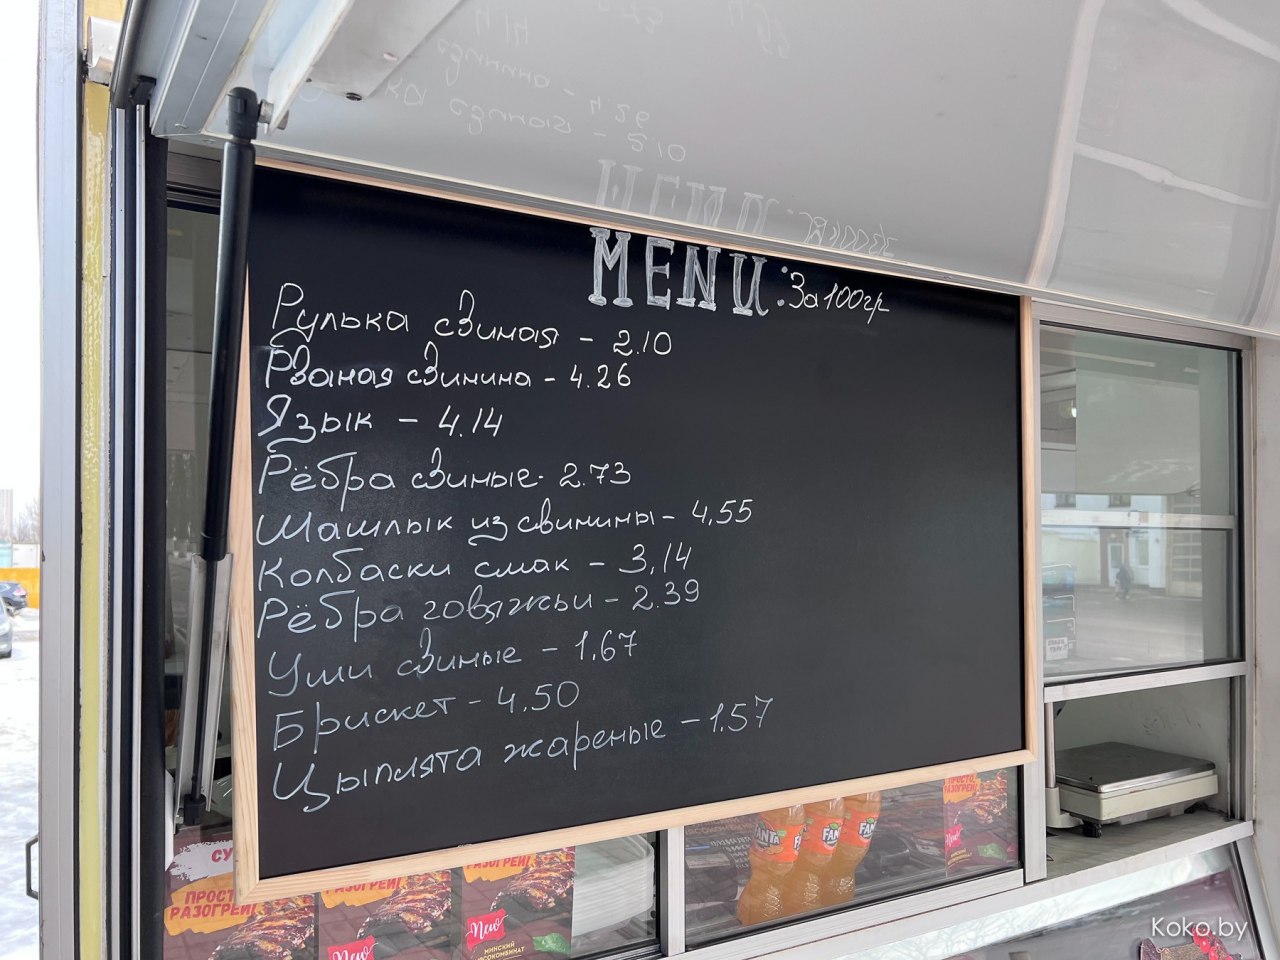 MENU: За 100гр
Рулька свиная - 2.10
Рваная свинина - 4.26
Язык - 4.14
Рёбра свиные - 2.73
Шашлык из свинины - 4,55
Колбаски смак - 3,14
Рёбра говяжьи - 2.39
Уши свиные - 1,67
Брискет - 4.50
Цыплята жареные - 1.57
ПРОСТО
РАЗОГРЕЙ!
РАЗОГРЕЙ!
РАЗОГРЕЙ!
New
New
МИНСКИЙ
FANTA
FANTA
FANTA
ПРОСТО
РАЗОГРЕЙ!
New
Koko.by